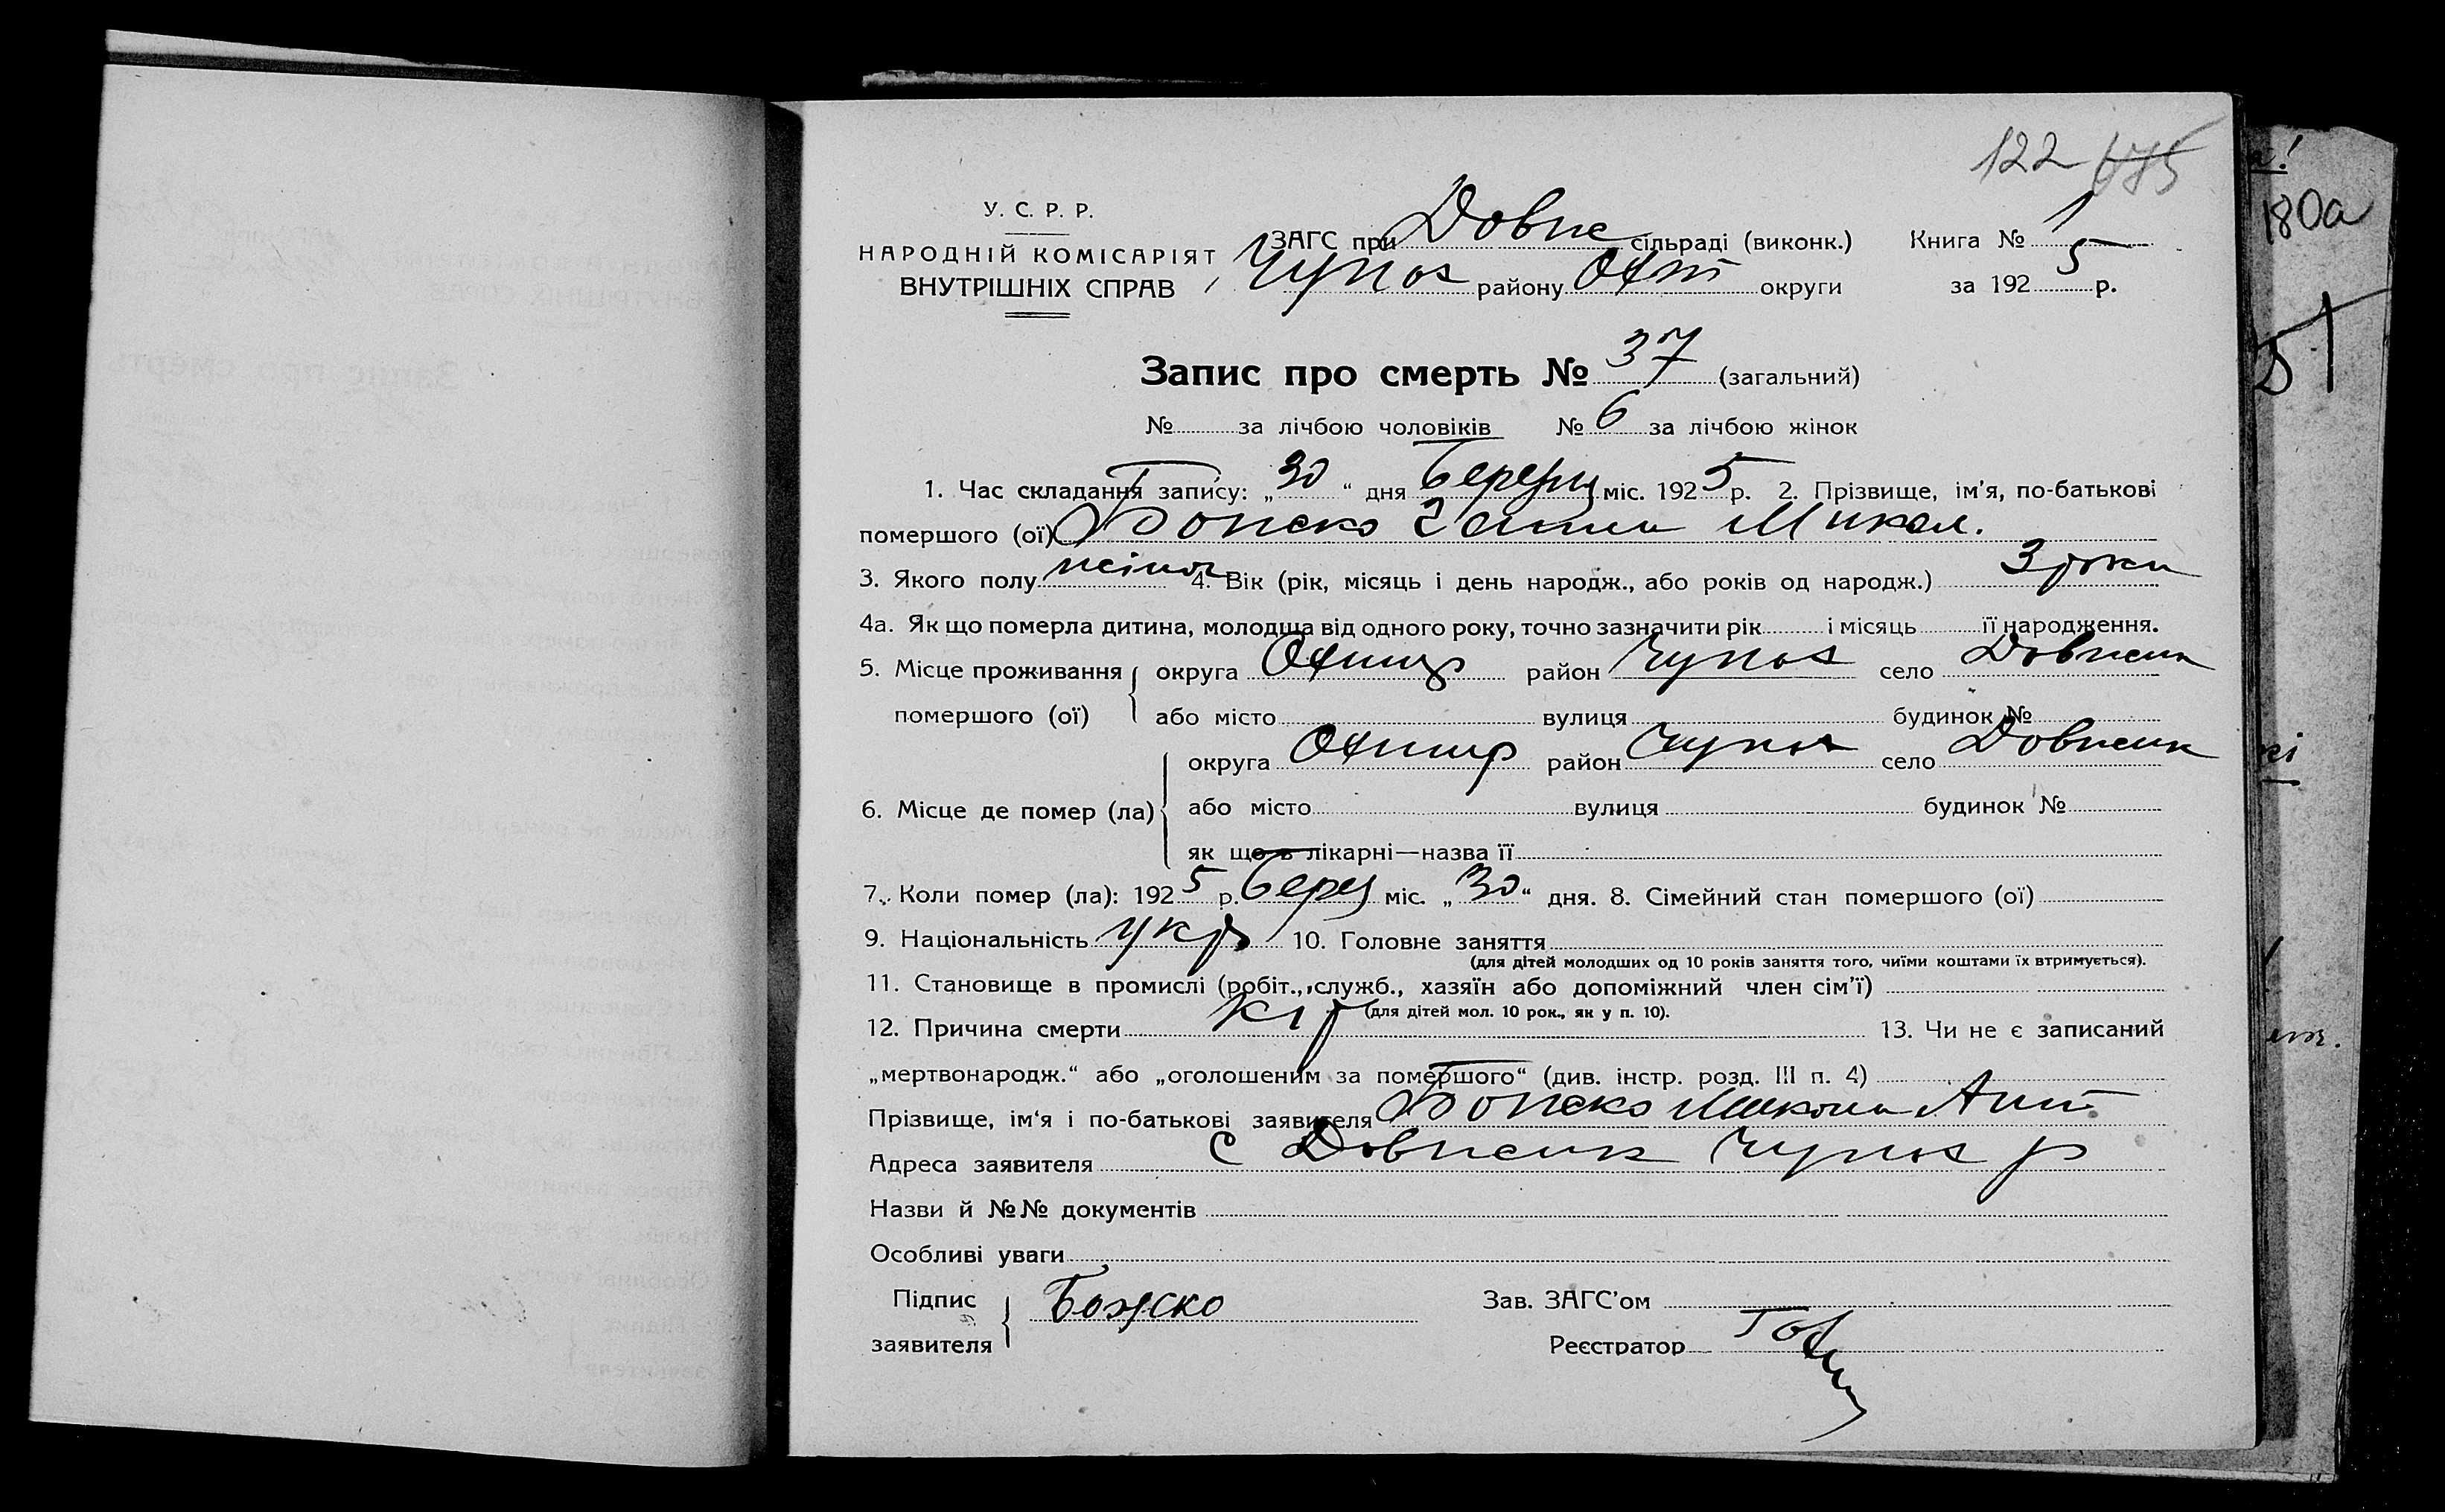 122 175
У. С. Р. Р.
НАРОДНІЙ КОМІСАРІЯТ
ВНУТРІШНІХ СПРАВ
ЗАГС при Довж сільраді (виконк.) Книга № 1
Чупах району Охт округи за 1925 р.
Запис про смерть № 37 (загальний)
№ за лічбою чоловіків № 6 за лічбою жінок
1. Час складання запису: „30“ дня Березц міс. 1925 р. 2. Прізвище, ім'я, по-батькові
помершого (ої) Божско Ганна Микол.
3. Якого полу жіноч 4. Вік (рік, місяць і день народж., або років од народж.) 3 роки
4а. Як що померла дитина, молодша від одного року, точно зазначити рік і місяць її народження.
5. Місце проживання округа Охтир район Чупах село Довжик
помершого (ої) або місто вулиця будинок №
округа Охтир район Чупах село Довжик
6. Місце де помер (ла) або місто вулиця будинок №
як що в лікарні—назва її
7. Коли помер (ла): 1925 р. Берез міс. „30“ дня. 8. Сімейний стан помершого (ої)
9. Національність укр 10. Головне заняття
(для дітей молодших од 10 років заняття того, чиїми коштами їх втримується).
11. Становище в промислі (робіт., служб., хазяїн або допоміжний член сім'ї)
(для дітей мол. 10 рок., як у п. 10).
12. Причина смерти Кір 13. Чи не є записаний
„мертвонародж.“ або „оголошеним за помершого“ (див. інстр. розд. III п. 4)
Прізвище, ім'я і по-батькові заявителя Божско Микола Ант
Адреса заявителя С Довжик Чупах р
Назви й №№ документів
Особливі уваги
Підпис Божско Зав. ЗАГС'ом
заявителя Реєстратор
180а